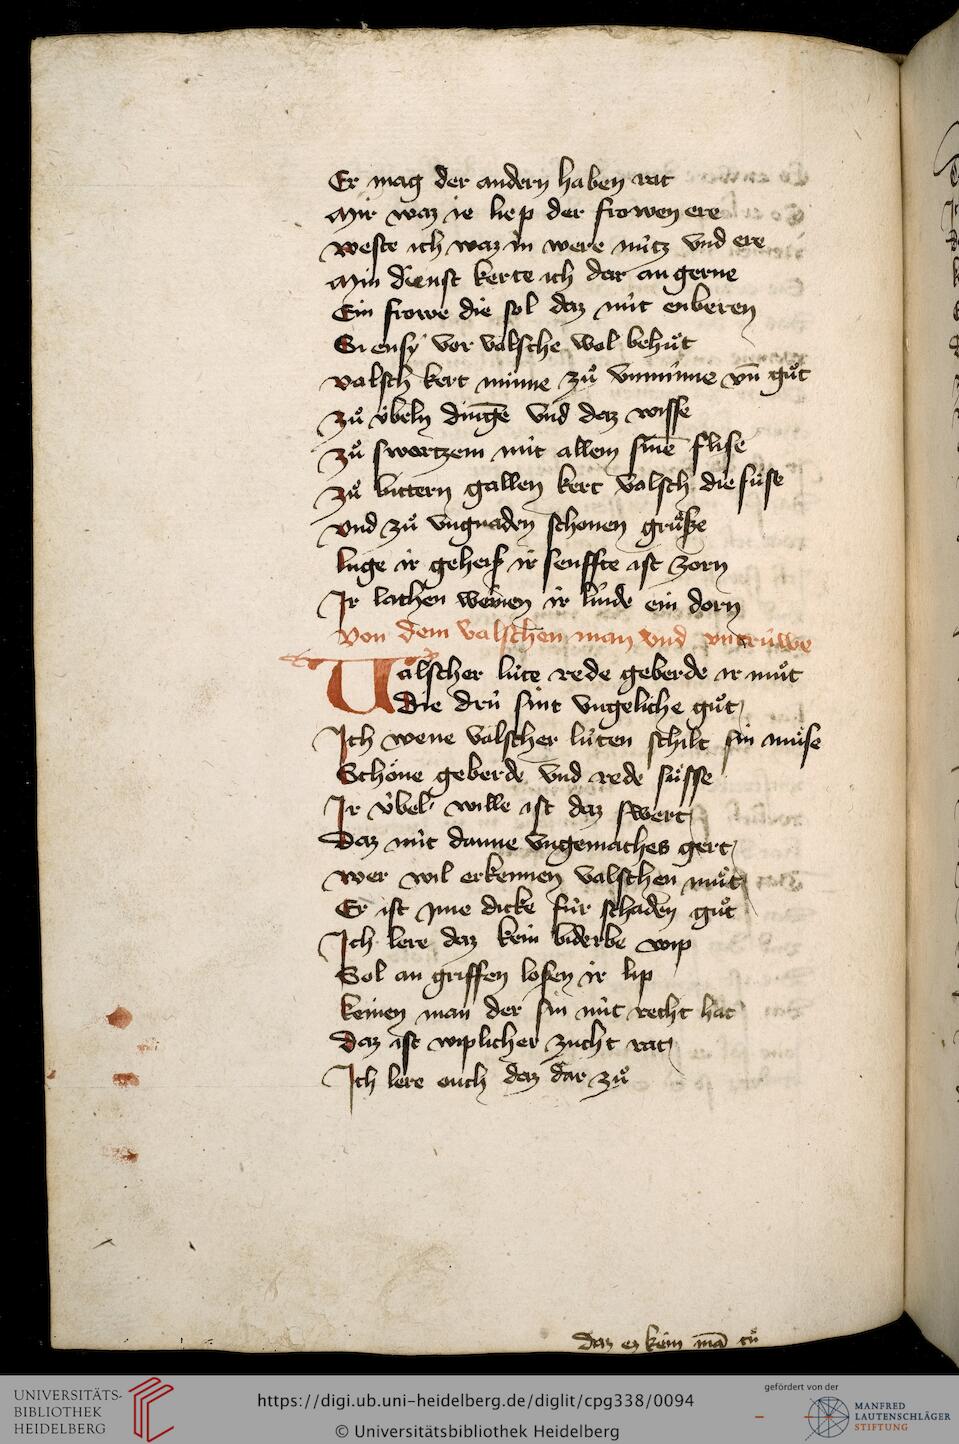 Er mag der andern haben rat
Mir waz ie liep der frowen ere
weste ich waz in were nútz vnd ere
Min dienst kerte ich dar an gerne
Ein frowe die sol daz nút enberen
Si ensÿ vor valsche wol behuͦt
valsch kert minne zuͦ vnminne vn̄ guͦt
zuͦ úbeln dingē vnd daz wisse
zuͦ swartzem mit allem sinē flise
zuͦ bittern gallen kert valsch die suͤse
vnd zuͦ vngnaden schonen gruͤße
luge ir geheis ir senffte ist zorn
Ir lachen weinen ir linde ein dorn
Von dem valschen man vnd vntrúwe
Valscher lúte rede geberde ir muͦt
Die drú sint vngeliche guͦt
Ich wene valscher lúten schilt sin muͤse
Schöne geberde vnd rede suͤsse
Ir úbel wille ist daz swert
Daz nút danne vngemaches gert
wer wil erkennen valschen muͦt
Er ist ime dicke fúr schaden guͦt
Ich lere daz kein biderbe wip
Sol an griffen losen ir lip
keinen man der sin nút recht hat
daz ist wiplicher zucht rat
Ich lere ouch daz dar zuͦ
daz ez kein mā tuͦ
UNIVERSITÄTS-
BIBLIOTHEK
HEIDELBERG
https://digi.ub.uni-heidelberg.de/diglit/cpg338/0094
© Universitätsbibliothek Heidelberg
gefördert von der
MANFRED
LAUTENSCHLÄGER
STIFTUNG